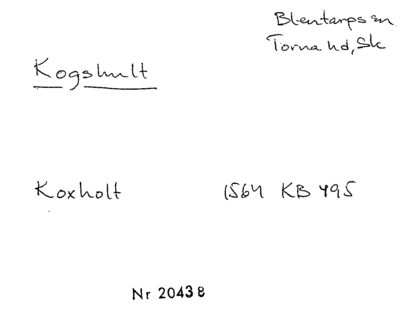 Blentarps sn
Torna hd, Sk
Kogshult
Koxholt 1564 KB 495
Nr 20438